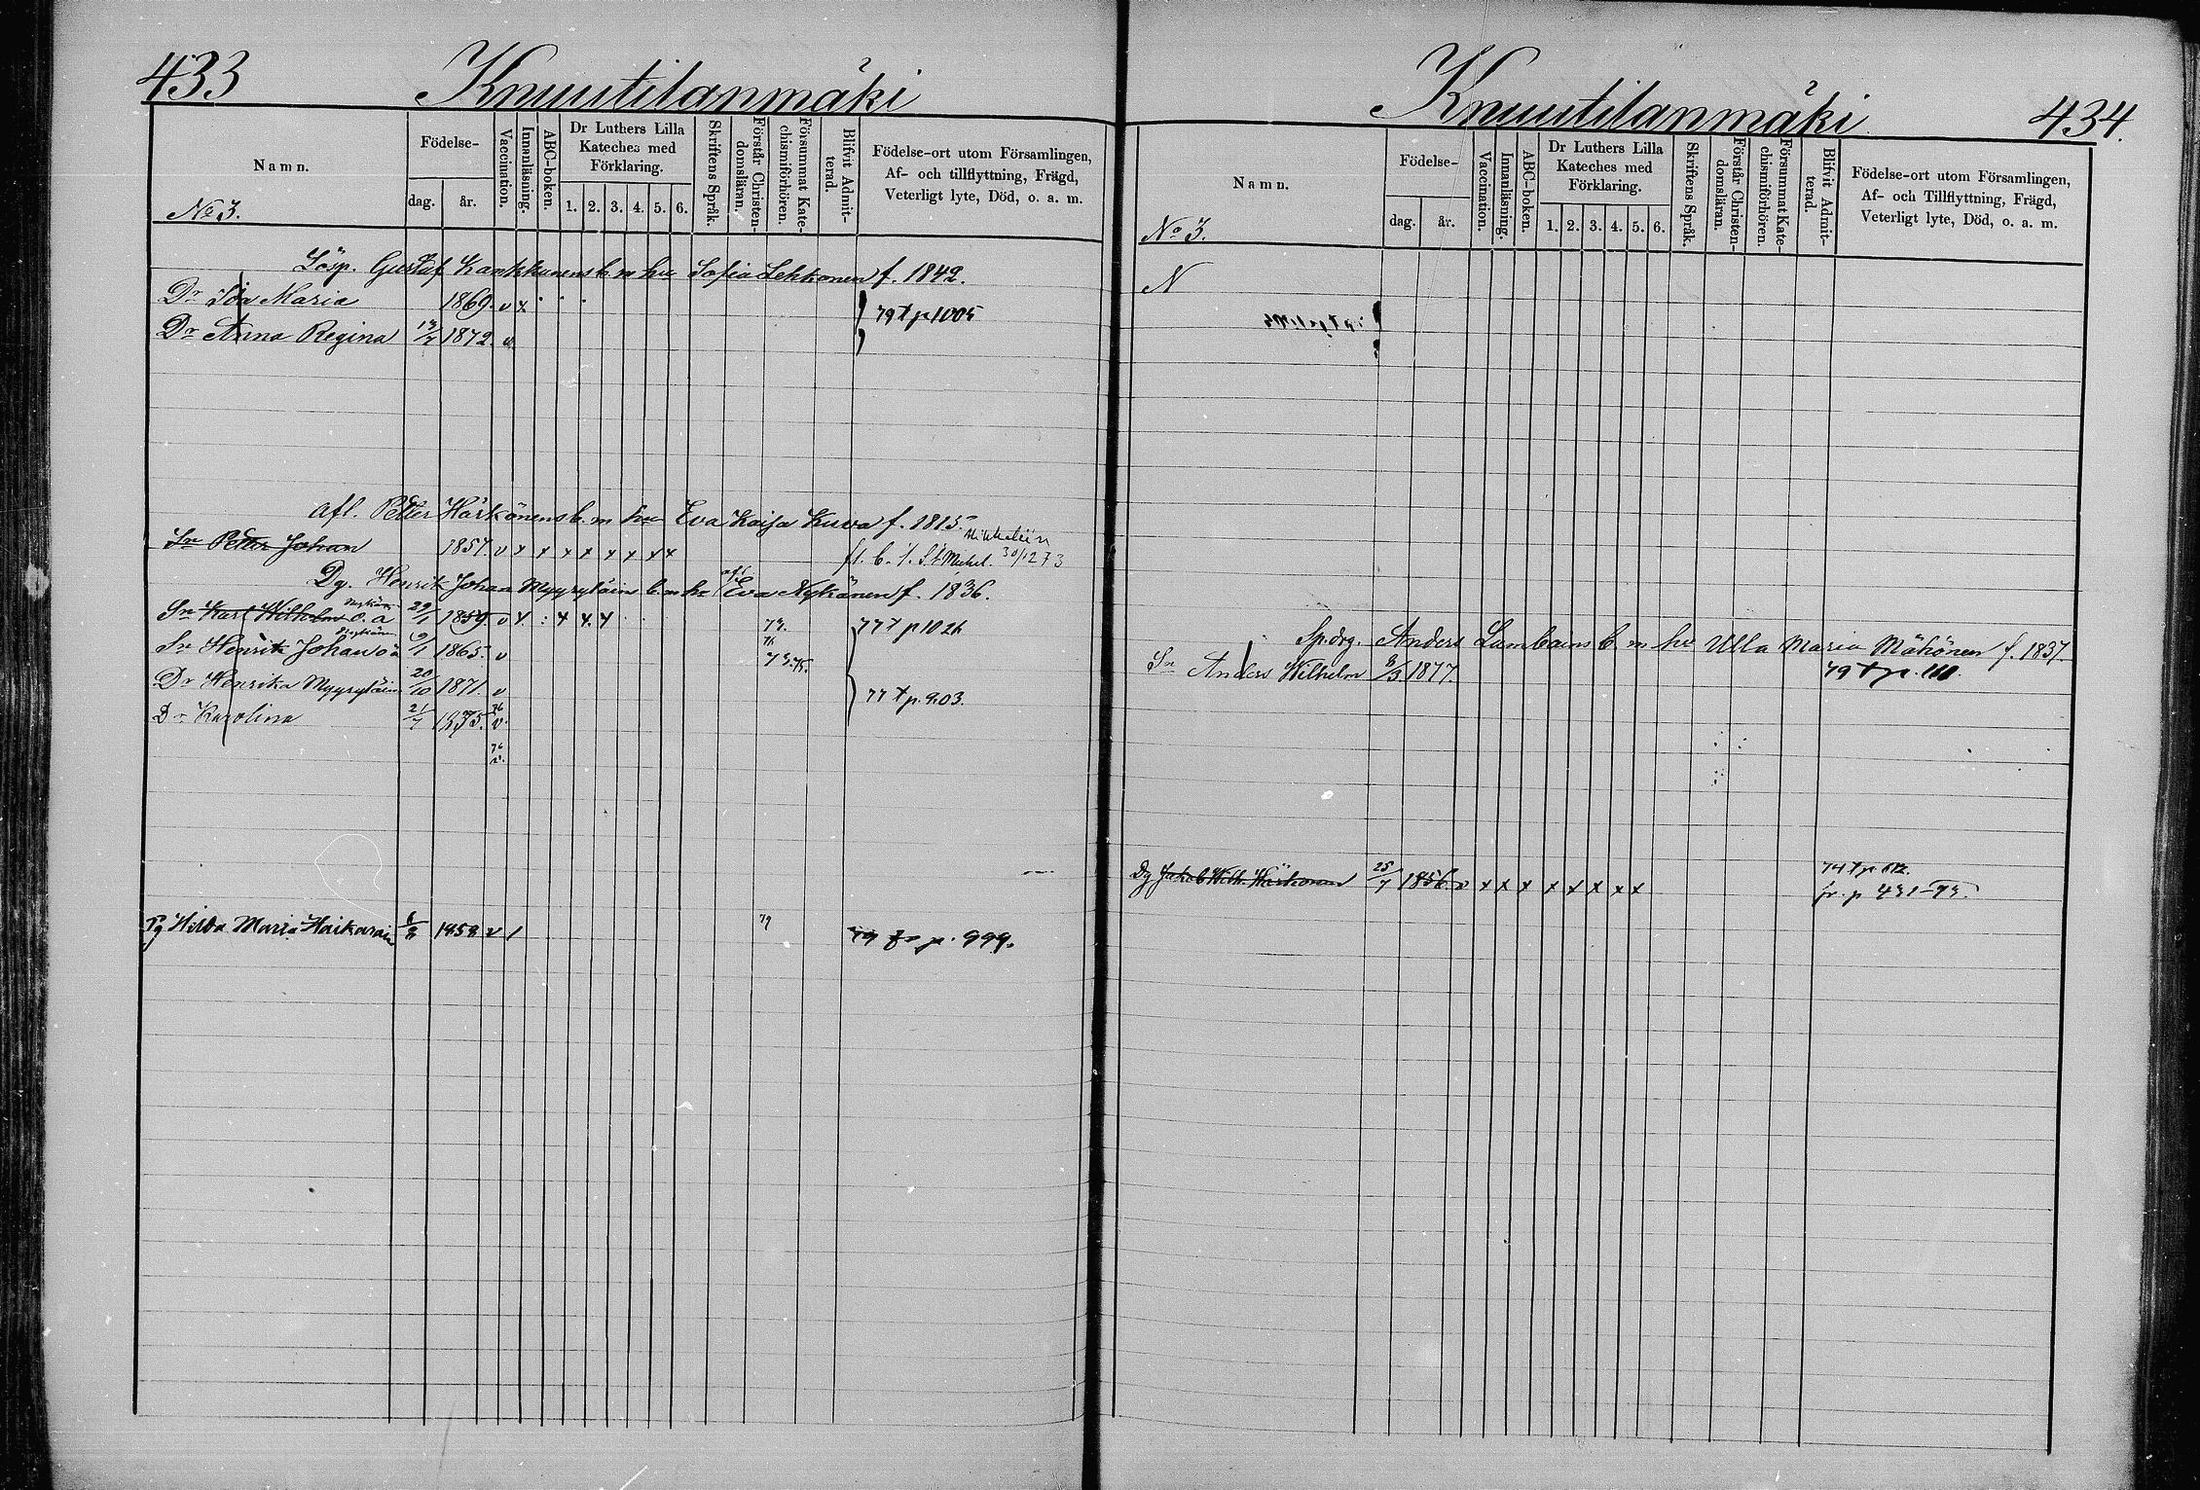 433
Knuutilanmäki
Namn.
Födelse-
dag.
år.
Vaccination.
Innanläsning.
ABC-boken.
Dr Luthers Lilla
Kateches med
Förklaring.
1. 2. 3. 4. 5. 6.
Skriftens Språk.
Förstår Christen-
domsläran.
Försummat Kate-
chismiförhören.
Blifvit Admit-
terad.
Födelse-ort utom Församlingen,
Af- och tillflyttning, Frägd,
Veterligt lyte, Död, o. a. m.
No 3.
Lösp. Gustaf Kankkunens b. m hu Sofia Lehkonen f. 1842.
Dr Ida Maria 1869. v x
79 t p 1005
Dr Anna Regina 13/7 1872. v.
Afl. Petter Härkönens b. m hu Eva Kaisa Kuva f. 1815.
Mikkeliin
Sn Petter Johan 1857. v x x x x x x x x fl. b. t. St Michel. 30/12 73
Dg. Henrik Johan Myyryläin b. m h. afl. Eva Nykänen f. 1836.
Nykän.
Sn Karl Wilhelm o. ä 29/1 1859. v x : x x x 73. 77 t p 1026
Sn Henrik Johan o ä 19/1 1865. v 73. 75.
Dr Henrika Myyryläin 20/10 1871. v
77 t p. 903.
Dr Karolina 21/7 1875. 76 v.
76
v.
Pg Hilda Maria Haikarain 6/8 1858 v / 79 79 fr p. 999.
Knuutilanmäki
434.
Namn.
Födelse-
dag.
år.
Vaccination.
Innanläsning.
ABC-boken.
Dr Luthers Lilla
Kateches med
Förklaring.
1. 2. 3. 4. 5. 6.
Skriftens Språk.
Förstår Christen-
domsläran.
Försummat Kate-
chismiförhören.
Blifvit Admit-
terad.
Födelse-ort utom Församlingen,
Af- och Tillflyttning, Frägd,
Veterligt lyte, Död, o. a. m.
No 3.
N
Sp.drg. Anders Lambains b. m hu Ulla Maria Mähönen f. 1837.
Sn Anders Wilhelm 8/3. 1877. 79 t p. 111.
74 t p. 112.
Dg Jakob Wilh. Härkönen 25/7 1856 v x x x x x x x x fr. p 431-73.